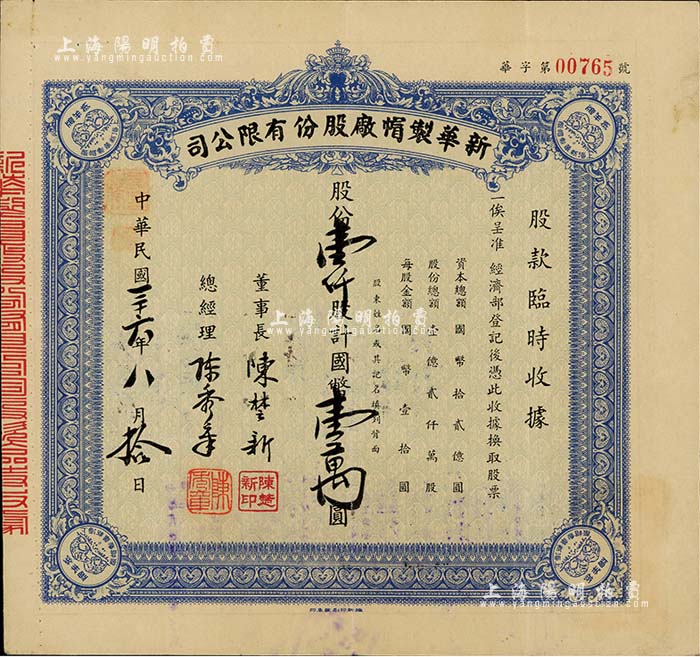 上海陽明拍賣
www.yangmingauction.com
華字第00765號
新華製帽廠股份有限公司
股款臨時收據
一俟呈准經濟部登記後憑此收據換取股票
資本總額國幣拾貳億圓
股份總額壹億貳仟萬股
每股金額國幣壹拾圓
股東姓名或其記名填列背面
股份壹仟股計國幣壹萬圓
董事長陳楚新
總經理
陳楚新印
中華民國三十六年八月拾日
上海陽明拍賣
www.yangmingauction.com
上海陽明拍賣
www.yangmingauction.com